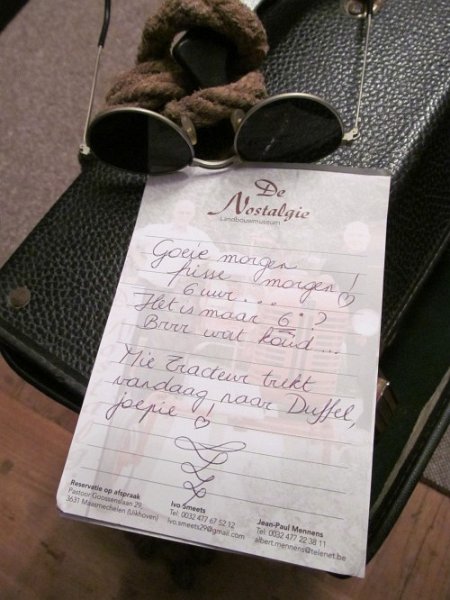 De
Nostalgie
Landbouwmuseum
Goeie morgen
frisse morgen! ♡
6 uur...
Het is maar 6°?
Brrr wat koud...
Mie Tracteur trekt
vandaag naar Duffel,
joepie! ♡
Reservatie op afspraak
Pastoor Goossenslaan 29,
3631 Maasmechelen (Uikhoven)
Ivo Smeets
Tel: 0032 477 67 52 12
ivo.smeets29@gmail.com
Jean-Paul Mennens
Tel: 0032 477 22 38 11
albert.mennens@telenet.be